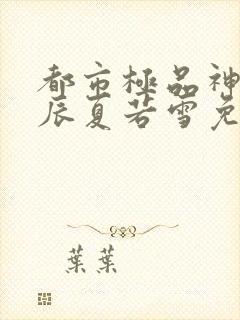 都市極品神
辰夏若雪免
葉葉